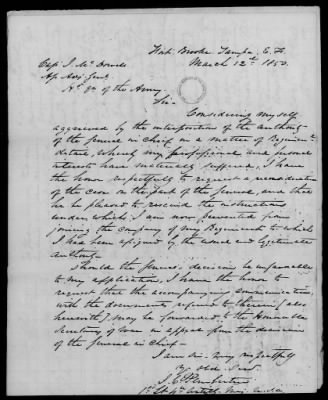 Fort Brooke Tampa E. F.
March 12th 1850.
Capt I. McDowell
Asst Adjt Genl
Hd Qrs of the Army.
Sir-
Considering myself
aggrieved by the interposition of the authority
of the General in Chief in a matter of Regimental
detail, whereby my professional and personal
interests have materially suffered, I have
the honor respectfully to request a reconsideration
of the case on the part of the General, and that
he be pleased to rescind the instructions
under which I am now prevented from
joining the company of my Regiment to which
I had been assigned by the usual and legitimate
authority.
Should the General's decision be unfavorable
to my application, I have the honor to
request that the accompanying communication,
with the documents referred to therein, (also
herewith) may be forwarded to the Honorable
Secretary of War in appeal from the decision
of the General in Chief-
I am Sir. Very respectfully
Yr obdt Servt
J. C. Pemberton
1st Lt 4th Artily